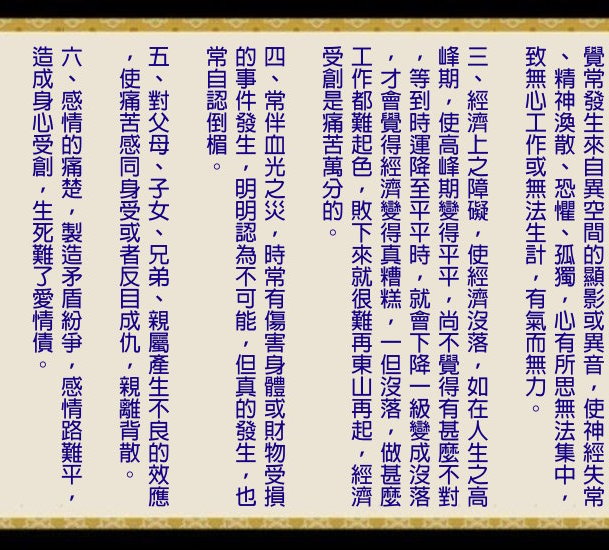 覺常發生來自異空間的顯影或異音，使神經失常
、精神渙散、恐懼、孤獨，心有所思無法集中，
致無心工作或無法生計，有氣而無力。
三、經濟上之障礙，使經濟沒落，如在人生之高
峰期，使高峰期變得平平，尚不覺得有甚麼不對
，等到時運降至平平時，就會下降一級變成沒落
，才會覺得經濟變得真糟糕，一但沒落，做甚麼
工作都難起色，敗下來就很難再東山再起，經濟
受創是痛苦萬分的。
四、常伴血光之災，時常有傷害身體或財物受損
的事件發生，明明認為不可能，但真的發生，也
常自認倒楣。
五、對父母、子女、兄弟、親屬產生不良的效應
，使痛苦感同身受或者反目成仇，親離背散。
六、感情的痛楚，製造矛盾紛爭，感情路難平，
造成身心受創，生死難了愛情債。